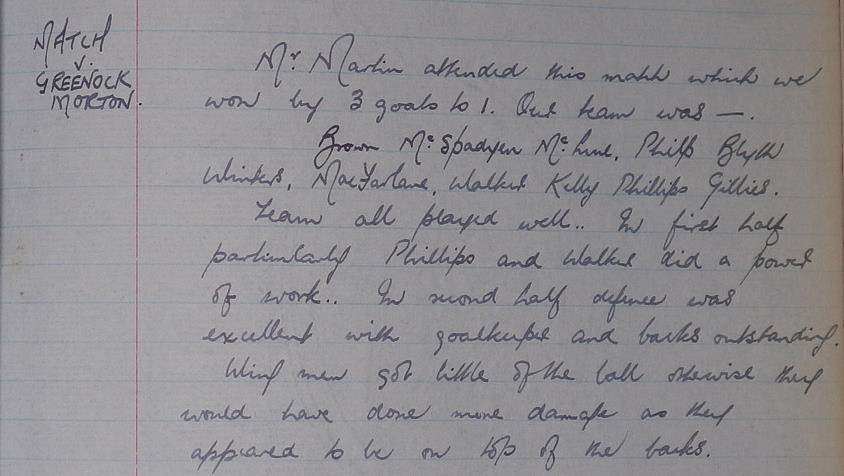 MATCH
v.
GREENOCK
MORTON.
Mr Martin attended this match which we
won by 3 goals to 1. Our team was —.
Brown Mc Spadyen Mc Clure, Philp Blyth
Winters, MacFarlane, Walker Kelly Phillips Gillies.
Team all played well.. In first half
particularly Phillips and Walker did a power
of work.. In second half defence was
excellent with goalkeeper and backs outstanding.
Wing men got little of the ball otherwise they
would have done more damage as they
appeared to be on top of the backs.